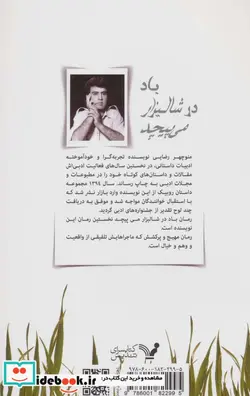 باد
در شالیزار
می‌پیچد
منوچهر رضایی نویسنده تجربه‌گرا و خودآموخته
ادبیات داستانی، در نخستین سال‌های فعالیت ادبی‌اش
مقالات و داستان‌های کوتاه خود را در مطبوعات و
مجلات ادبی به چاپ رساند. سال ۱۳۹۴ مجموعه
داستان روبیک از این نویسنده وارد بازار نشر شد که
با استقبال خوانندگان مواجه شد و موفق به دریافت
چند لوح تقدیر از جشنواره‌های ادبی گردید.
رمان باد در شالیزار می پیچد نخستین رمان این
نویسنده است.
رمان مهیج و پرکشش که ماجراهایش تلفیقی از واقعیت
و وهم و خیال است.
کتابسرای
تندیس
۹۷۸-۶۰۰-۱۸۲-۲۹۹-۵
9 786001 822995
مشاهده و خرید این کتاب در:
iranketab.ir